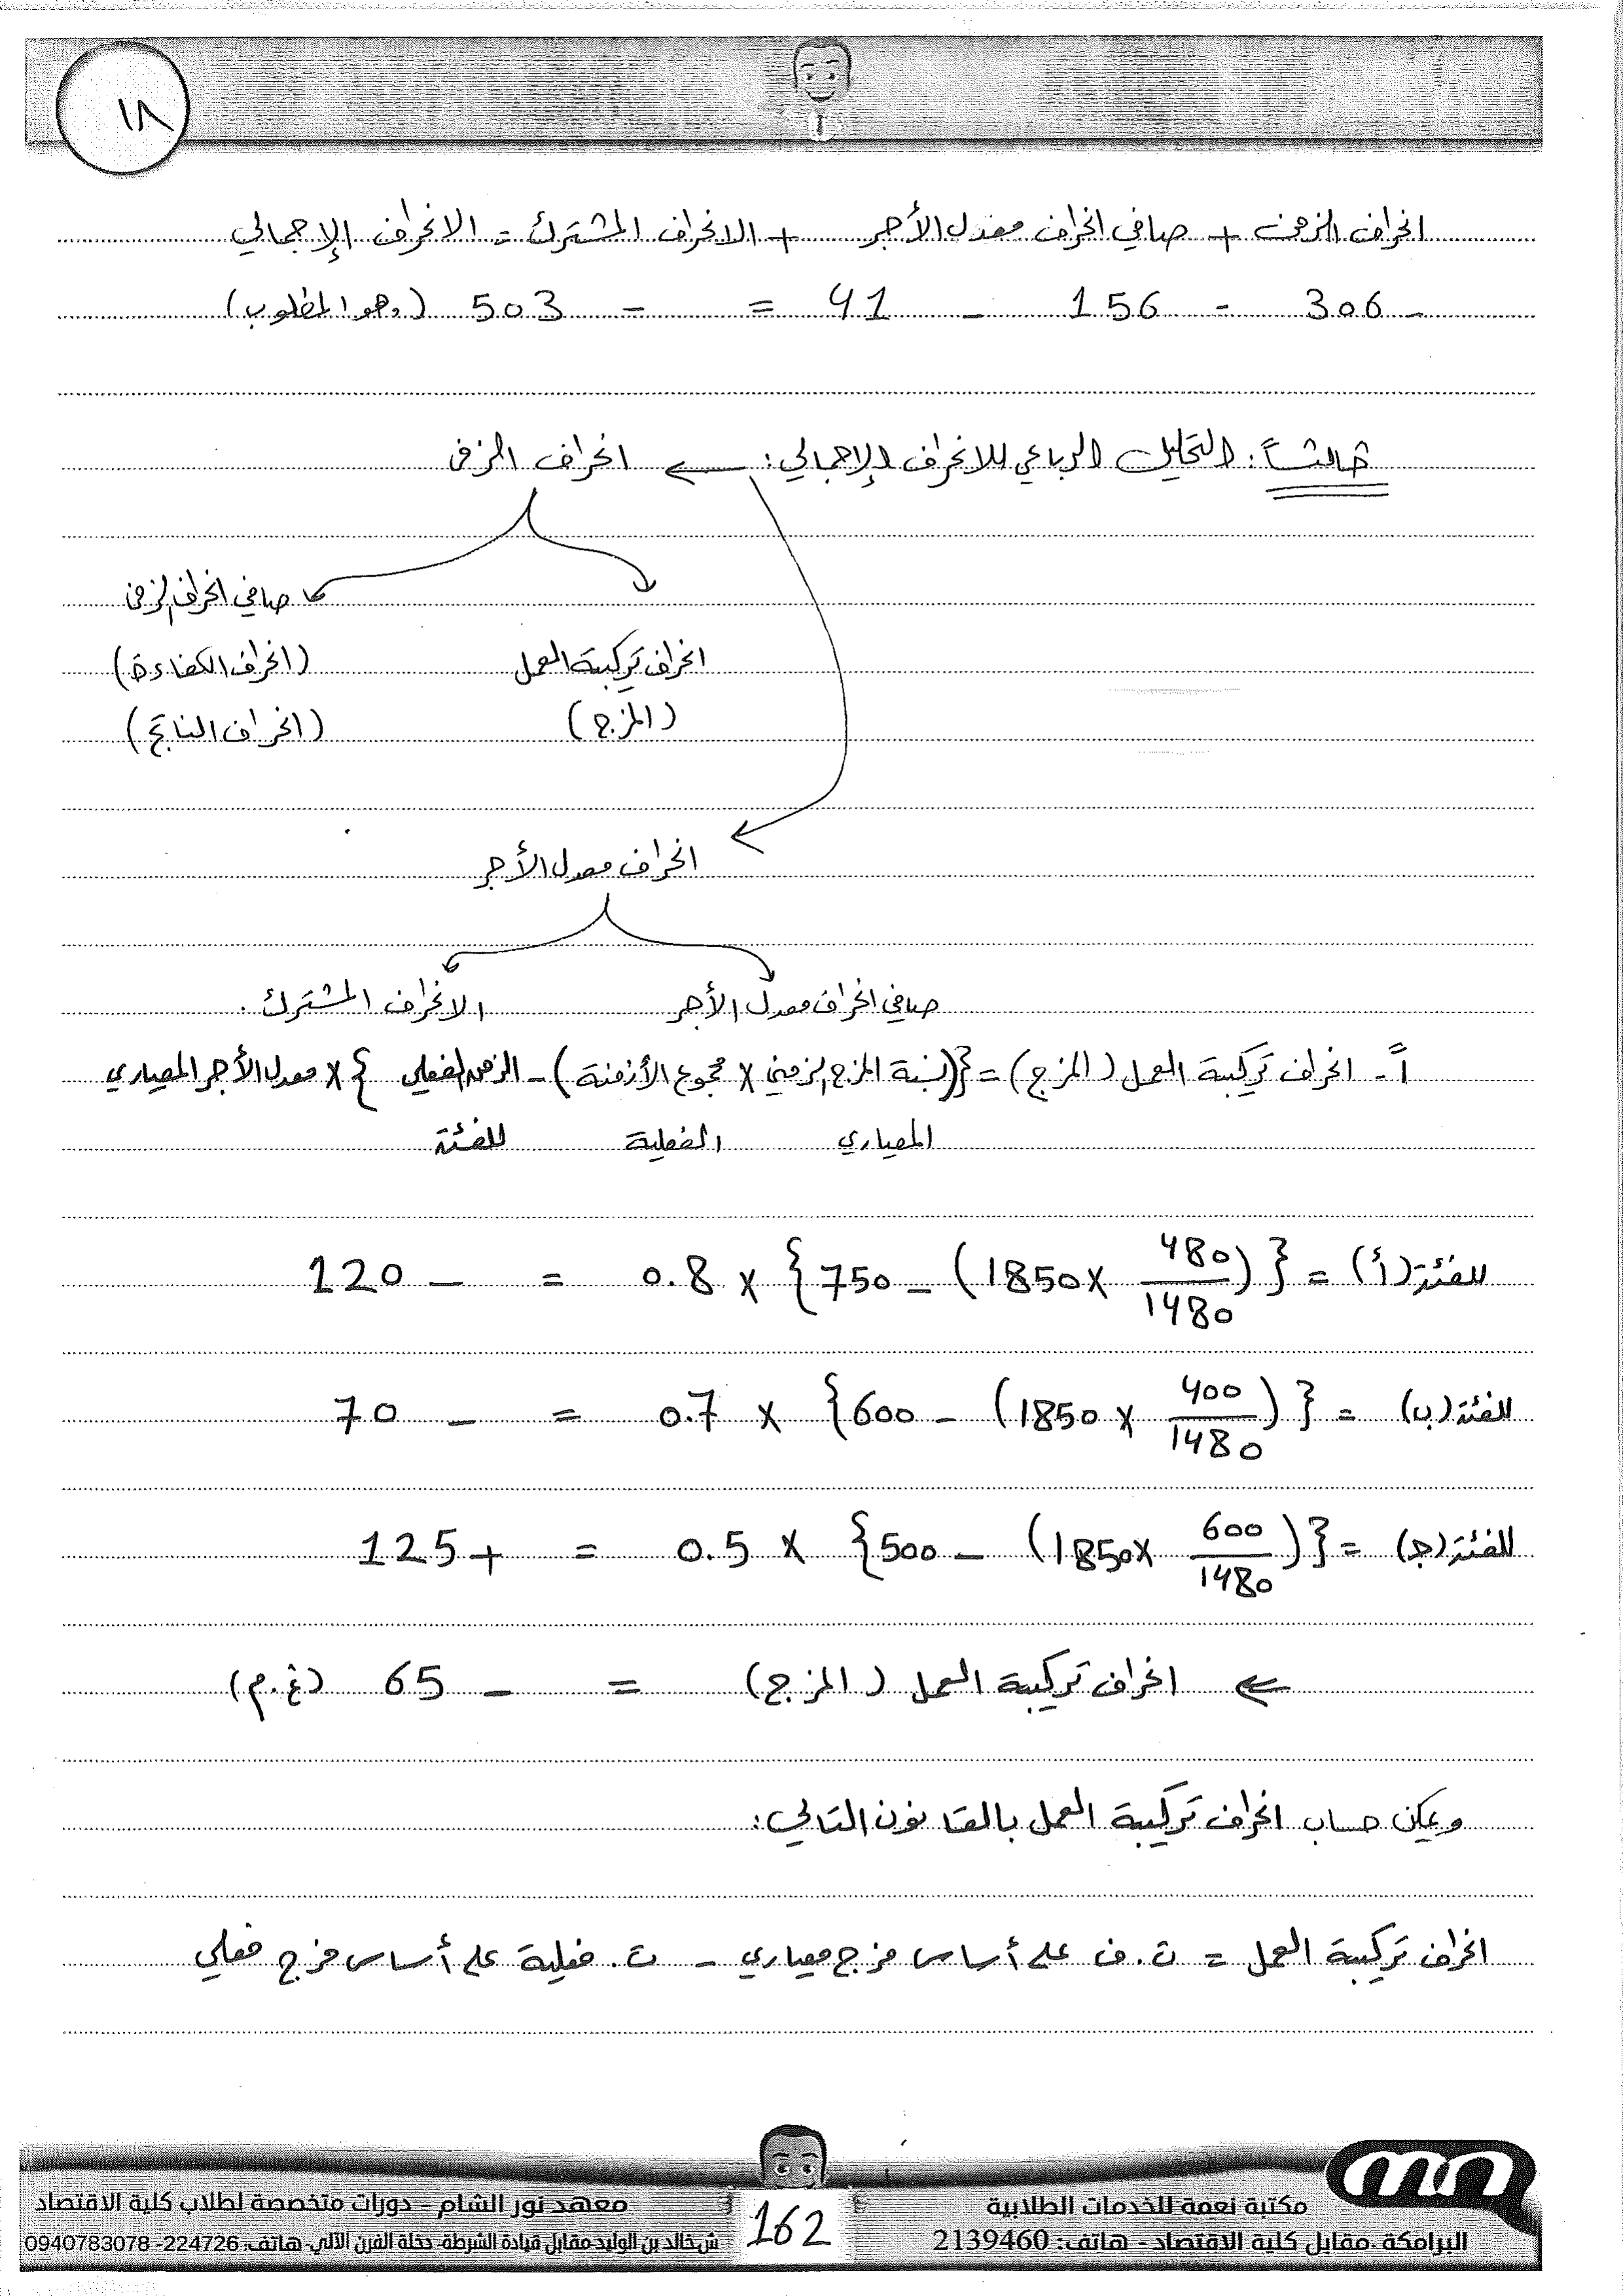 ١٨
انحراف الزمن + صافي انحراف معدل الأجر + الانحراف المشترك = الانحراف الإجمالي
- 306 - 156 - 41 = - 503 (وهو المطلوب)
ثالثاً: التحليل الرباعي للانحراف الإجمالي: ← انحراف الزمن
صافي انحراف الزمن
انحراف تركيبة العمل (انحراف الكفاءة)
(المزج) (انحراف الناتج)
انحراف معدل الأجر
صافي انحراف معدل الأجر الانحراف المشترك.
أً- انحراف تركيبة العمل (المزج) = {(نسبة المزج الزمني × مجموع الأزمنة) - الزمن الفعلي} × معدل الأجر المعياري
المعياري الفعلية للفئة
للفئة (أ) = {(480/1480 × 1850) - 750} × 0.8 = - 120
للفئة (ب) = {(400/1480 × 1850) - 600} × 0.7 = - 70
للفئة (ج) = {(600/1480 × 1850) - 500} × 0.5 = + 125
← انحراف تركيبة العمل (المزج) = - 65 (غ.م)
ويمكن حساب انحراف تركيبة العمل بالقانون التالي:
انحراف تركيبة العمل = ت.ف على أساس مزج معياري - ت. فعلية على أساس مزج فعلي
مكتبة نعمة للخدمات الطلابية
البرامكة -مقابل كلية الاقتصاد - هاتف: 2139460
162
معهد نور الشام - دورات متخصصة لطلاب كلية الاقتصاد
ش خالد بن الوليد-مقابل قيادة الشرطة- دخلة الفرن الآلي- هاتف: 224726- 0940783078